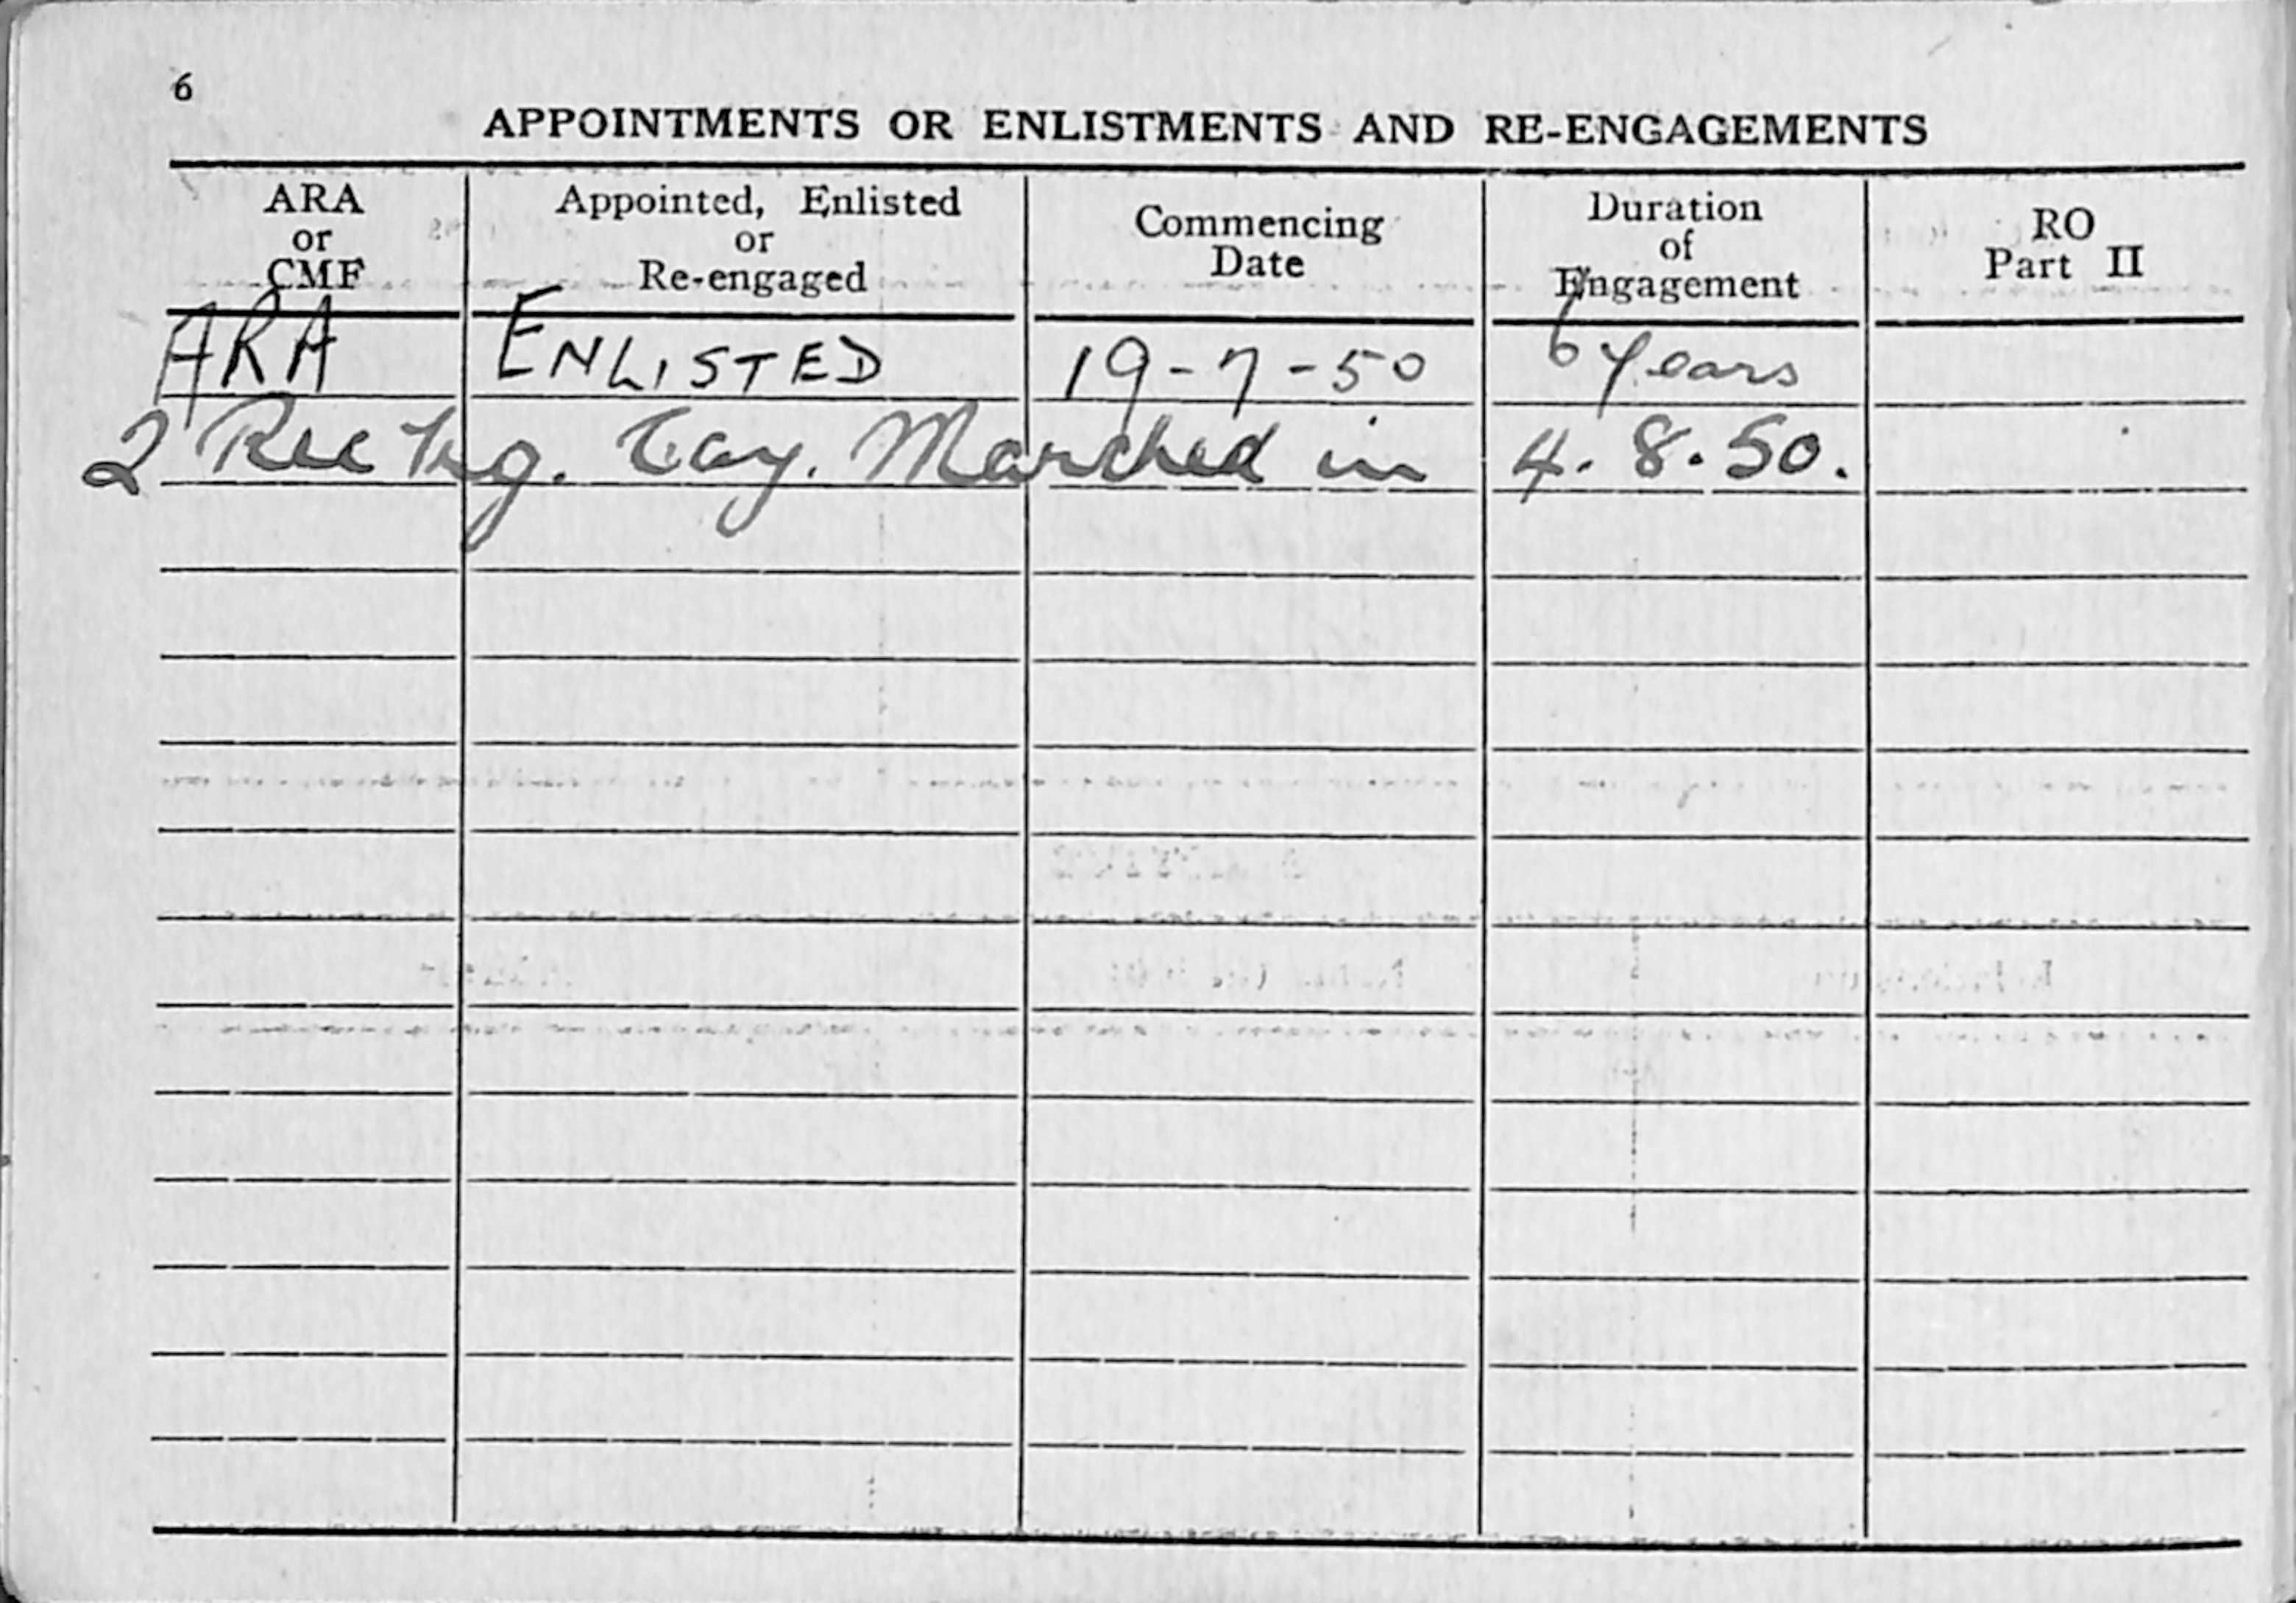 6
APPOINTMENTS OR ENLISTMENTS AND RE-ENGAGEMENTS
ARA or CMF
Appointed, Enlisted or Re-engaged
Commencing Date
Duration of Engagement
RO Part II
ARA ENLISTED 19-7-50 6 Years
2 Rec Trg. Coy. Marched in 4.8.50.